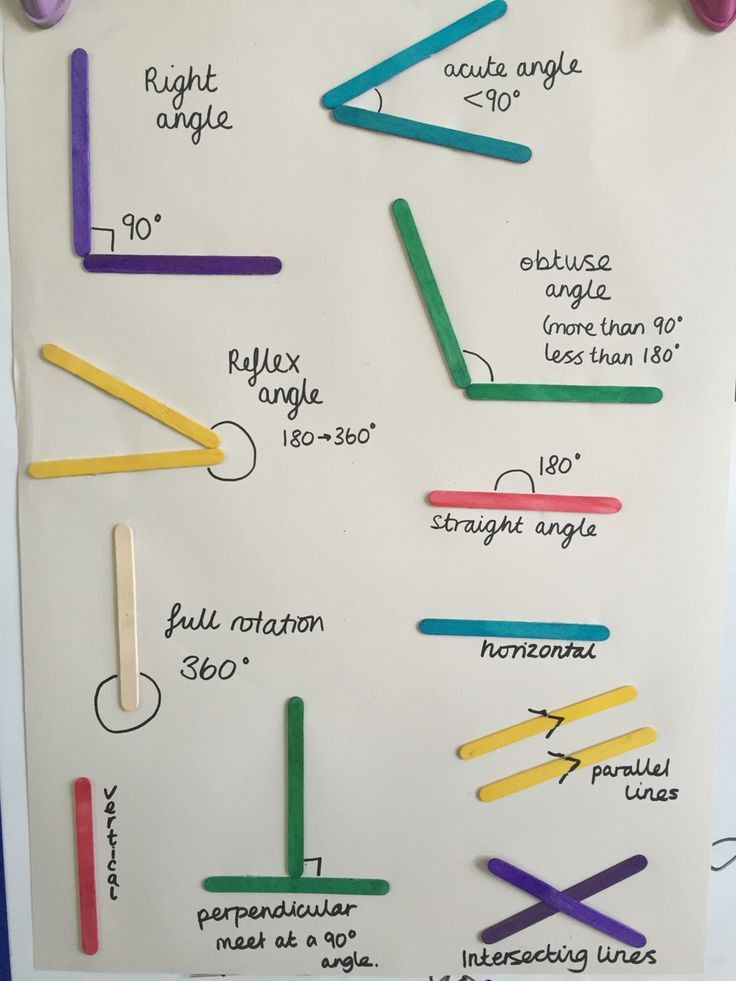 Right
angle
90°
acute angle
<90°
obtuse
angle
(more than 90°
less than 180°
Reflex
angle
180→360°
180°
straight angle
full rotation
360°
horizontal
parallel
lines
vertical
perpendicular
meet at a 90°
angle.
Intersecting lines